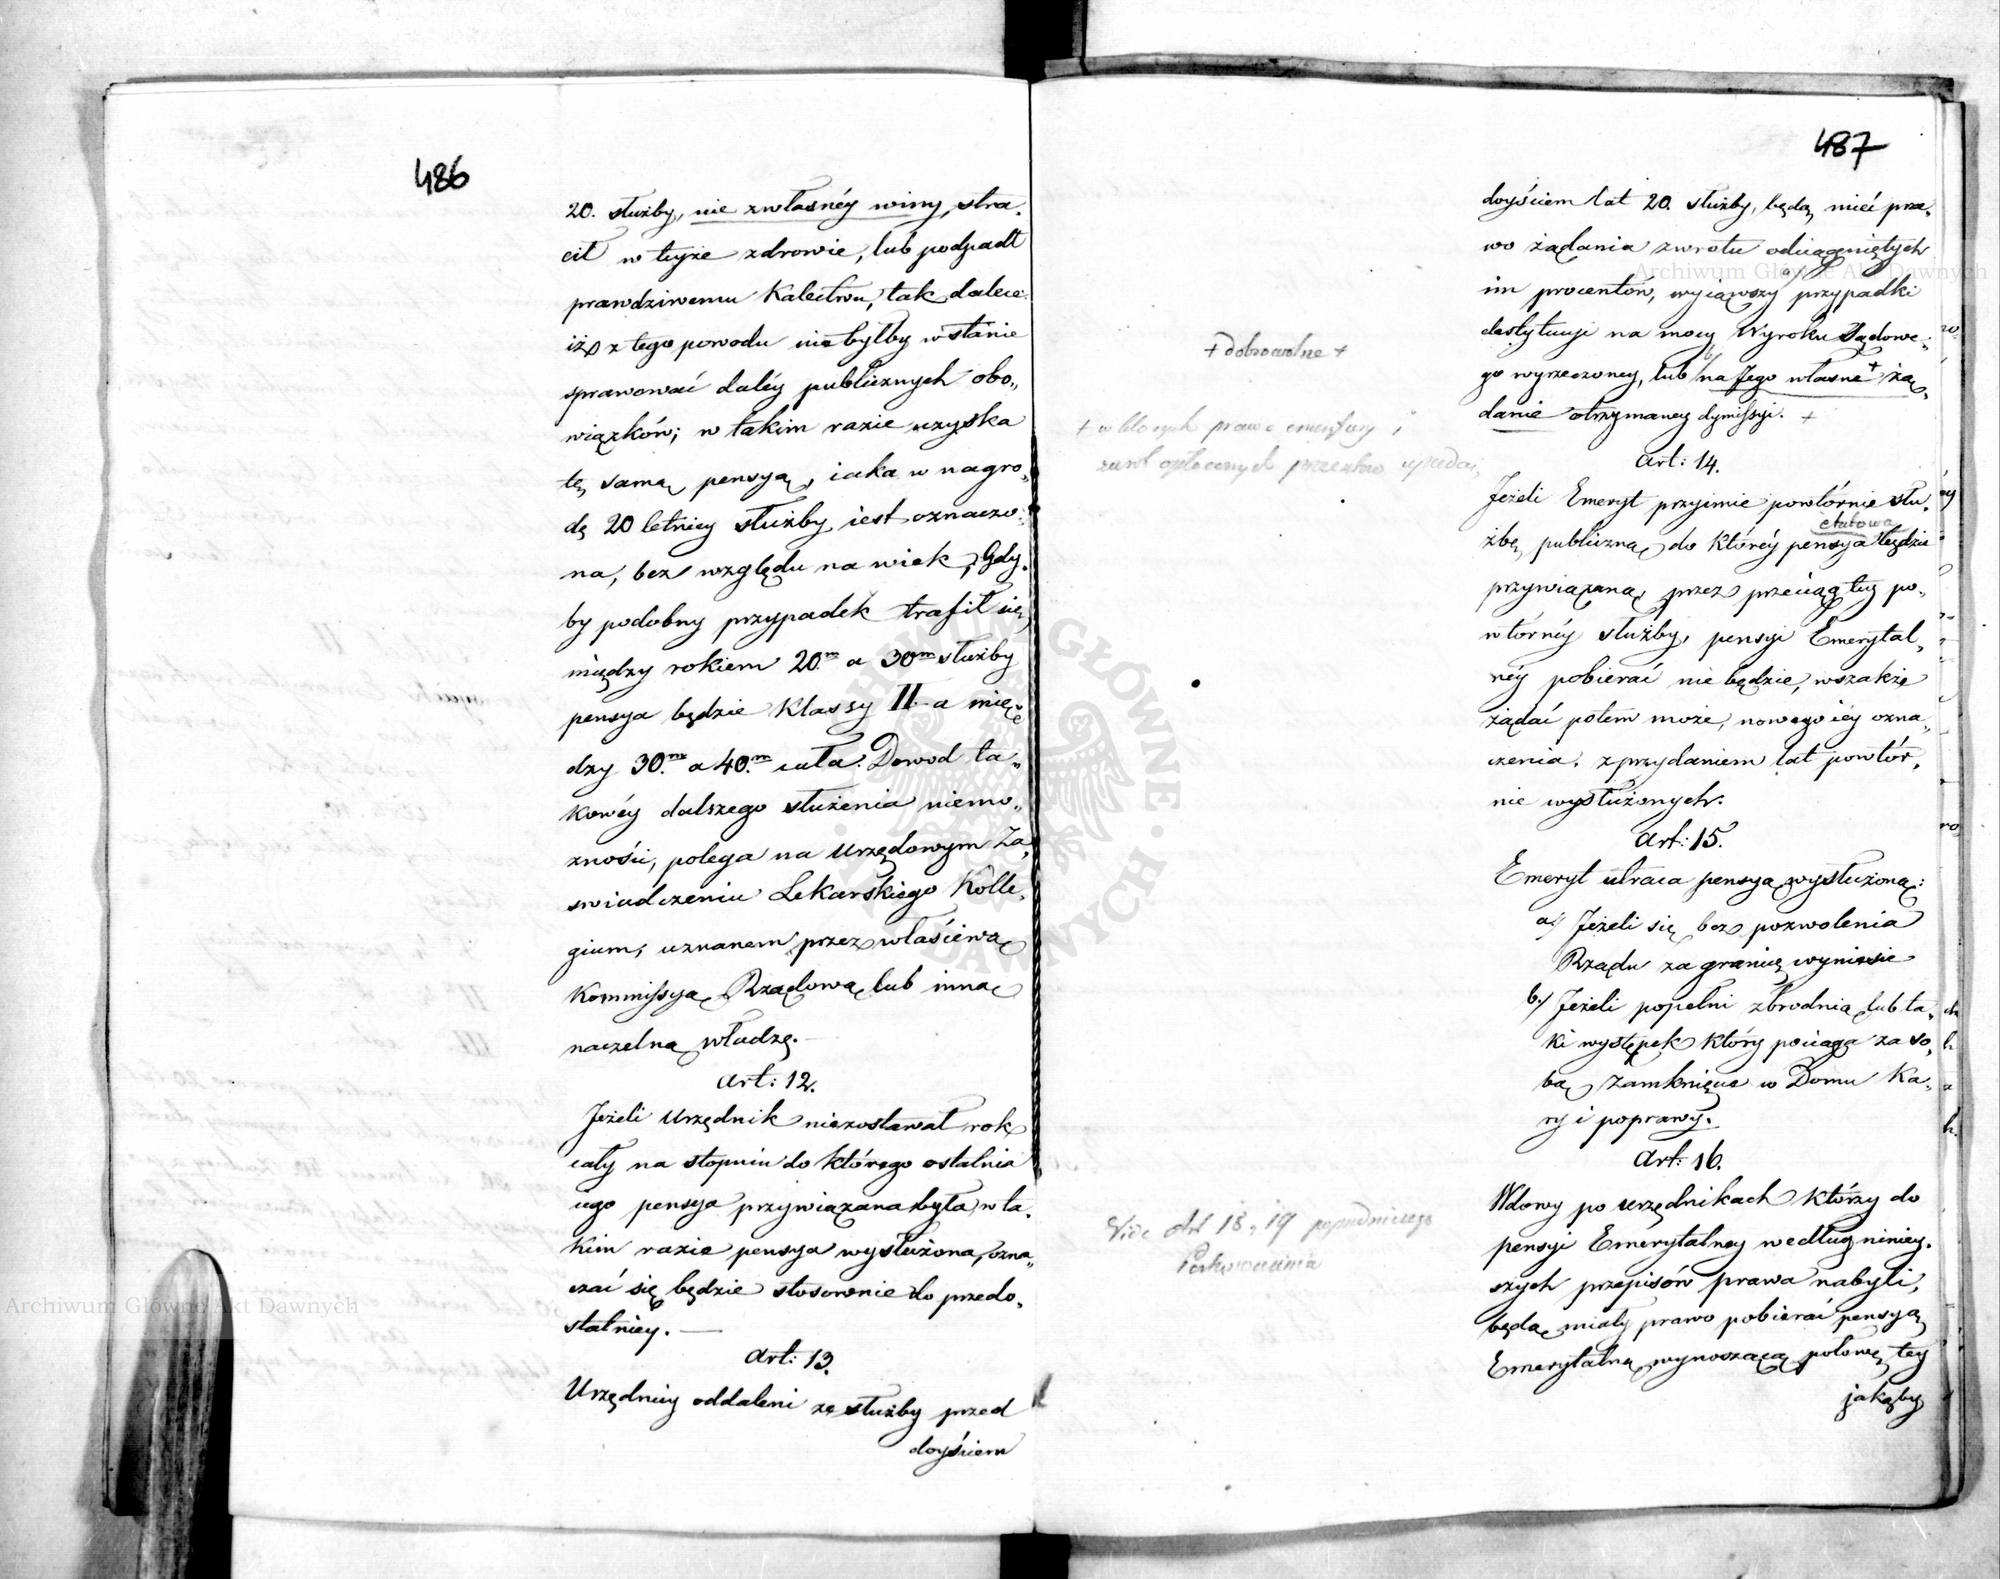 486
20. służby, nie zwłasnéy winy, stra„
cił w teyże zdrowie, lub podpadł
prawdziwemu Kalectwu, tak dalece
iż z tego powodu nie byłby wstanie
sprawować daléy publicznych obo„
wiązków; w takim razie uzyska
tę samą pensyą, iaka w nagro„
dę 20 letniey służby iest oznaczo„
na, bez względu na wiek, Gdy„
by podobny przypadek trafił się
między rokiem 20.m a 30m służby
pensya będzie Klassy II. a mię„
dzy 30.m a 40.m cała. Dowod ta„
kowéy dalszego służenia niemo„
zności, polega na Urzędowym Za„
swiadczeniu Lekarskiego Kolle„
gium, uznanem przez właściwą
Kommissyą Rządową lub inną
naczelną władzę.
Art: 12.
Jeżeli Urzędnik niezostawał rok
cały na stopniu do którego ostatnia
iego pensya przywiązana była, w ta„
kim razie pensya wysłużona, ozna„
czać się będzie stosownie do przedo„
statniey. —
Art: 13.
Urzędnicy oddaleni ze służby przed
doyściem
487
doyściem lat 20. służby, będą mieć pra„
wo żądania zwrotu odciągniętych
im procentów, wyiąwszy przypadki
destytucyi na mocy Wyroku Sądowe„
go wyrzeczoney, lub na Jego własne + żą„
danie otrzymaney dymissyi. +
+ dobrowolne +
+ w których prawo emerytury i
Art: 14.
Jeżeli Emeryt przyimie powtórnie słu„
etatowa
żbę publiczną do któréy pensya będzie
przywiązana, przez przeciąg tey po„
wtórnéy służby, pensyi Emerytal„
néy pobierać nie będzie, wszakże
żądać potem może, nowego iéy ozna„
czenia, z przydaniem lat powtór„
nie wysłużonych.
Art: 15.
Emeryt utraca pensyą wysłużoną:
a./ Jeżeli się bez pozwolenia
Rządu za granicę wyniesie
b./ Jeżeli popełni zbrodnią lub ta„
ki występek który pociąga za so„
bą zamknięcie w Domu Ka„
ry i poprawy.
Art: 16.
Wdowy po urzędnikach którzy do
pensyi Emerytalney według niniey„
szych przepisów prawa nabyli,
będą miały prawo pobierać pensyą
Emerytalną wynoszącą połowę tey
jakąby
Vide Art 18 i 19 poprzedniczego
Archiwum Główne Akt Dawnych
Archiwum Główne Akt Dawnych
ARCHIWUM GŁÓWNE AKT DAWNYCH